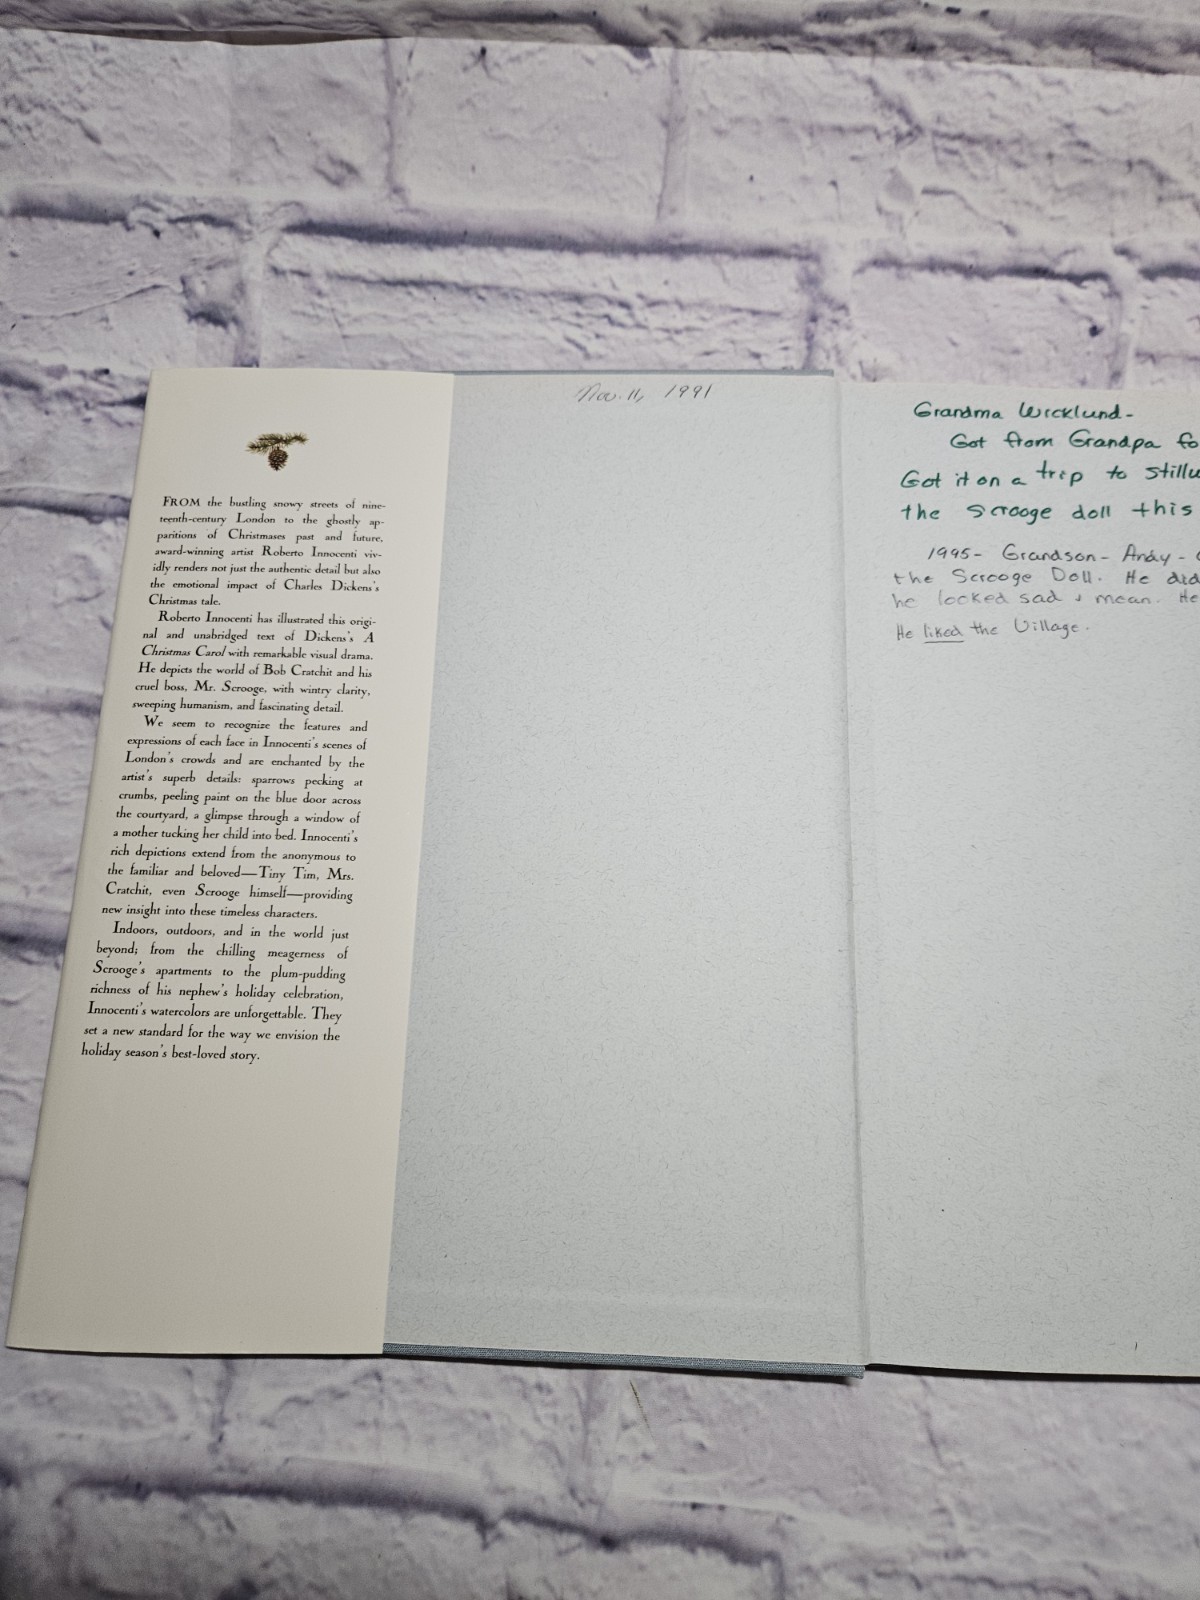 FROM the bustling snowy streets of nine-
teenth-century London to the ghostly ap-
paritions of Christmases past and future,
award-winning artist Roberto Innocenti viv-
idly renders not just the authentic detail but also
the emotional impact of Charles Dickens's
Christmas tale.
Roberto Innocenti has illustrated this origi-
nal and unabridged text of Dickens's A
Christmas Carol with remarkable visual drama.
He depicts the world of Bob Cratchit and his
cruel boss, Mr. Scrooge, with wintry clarity,
sweeping humanism, and fascinating detail.
We seem to recognize the features and
expressions of each face in Innocenti's scenes of
London's crowds and are enchanted by the
artist's superb details: sparrows pecking at
crumbs, peeling paint on the blue door across
the courtyard, a glimpse through a window of
a mother tucking her child into bed. Innocenti's
rich depictions extend from the anonymous to
the familiar and beloved—Tiny Tim, Mrs.
Cratchit, even Scrooge himself—providing
new insight into these timeless characters.
Indoors, outdoors, and in the world just
beyond; from the chilling meagerness of
Scrooge's apartments to the plum-pudding
richness of his nephew's holiday celebration,
Innocenti's watercolors are unforgettable. They
set a new standard for the way we envision the
holiday season's best-loved story.
Nov. 11, 1991
Grandma Wicklund-
Got from Grandpa fo
Got it on a trip to Stillw
the Scrooge doll this
1995- Grandson- Andy-
the Scrooge Doll. He did
he looked sad & mean. He
He liked the Village.